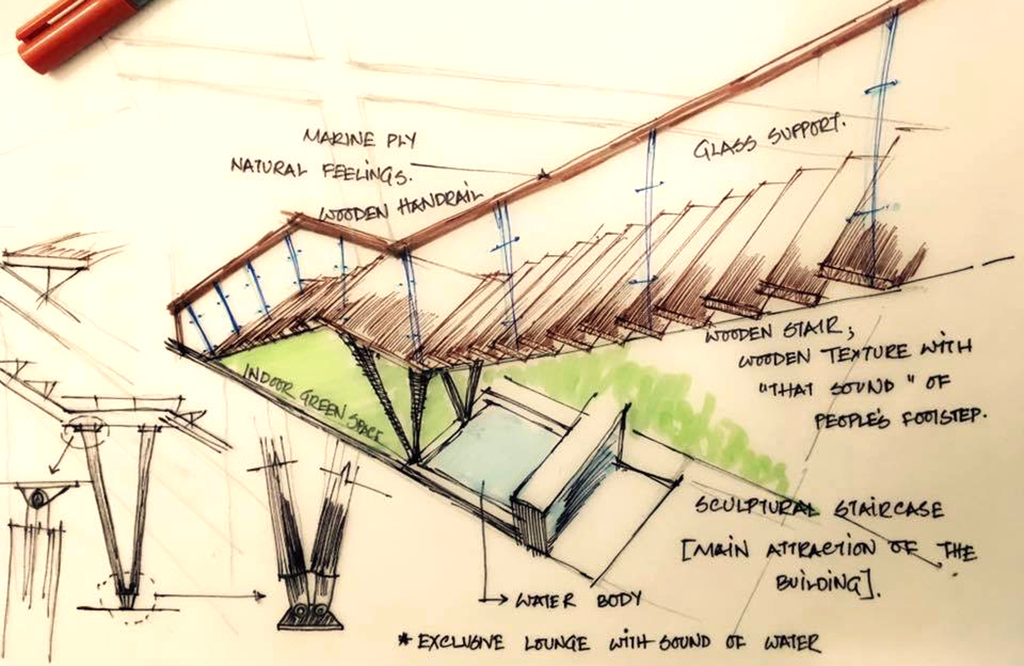 MARINE PLY
NATURAL FEELINGS.
WOODEN HANDRAIL
GLASS SUPPORT.
WOODEN STAIR;
WOODEN TEXTURE WITH
"THAT SOUND" OF
PEOPLE'S FOOTSTEP.
INDOOR GREEN SPACE
SCULPTURAL STAIRCASE
[MAIN ATTRACTION OF THE
BUILDING].
WATER BODY
* EXCLUSIVE LOUNGE WITH SOUND OF WATER